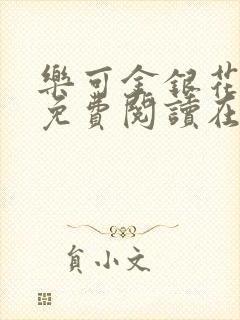 樂可金銀花
免費閱讀在
貟小文